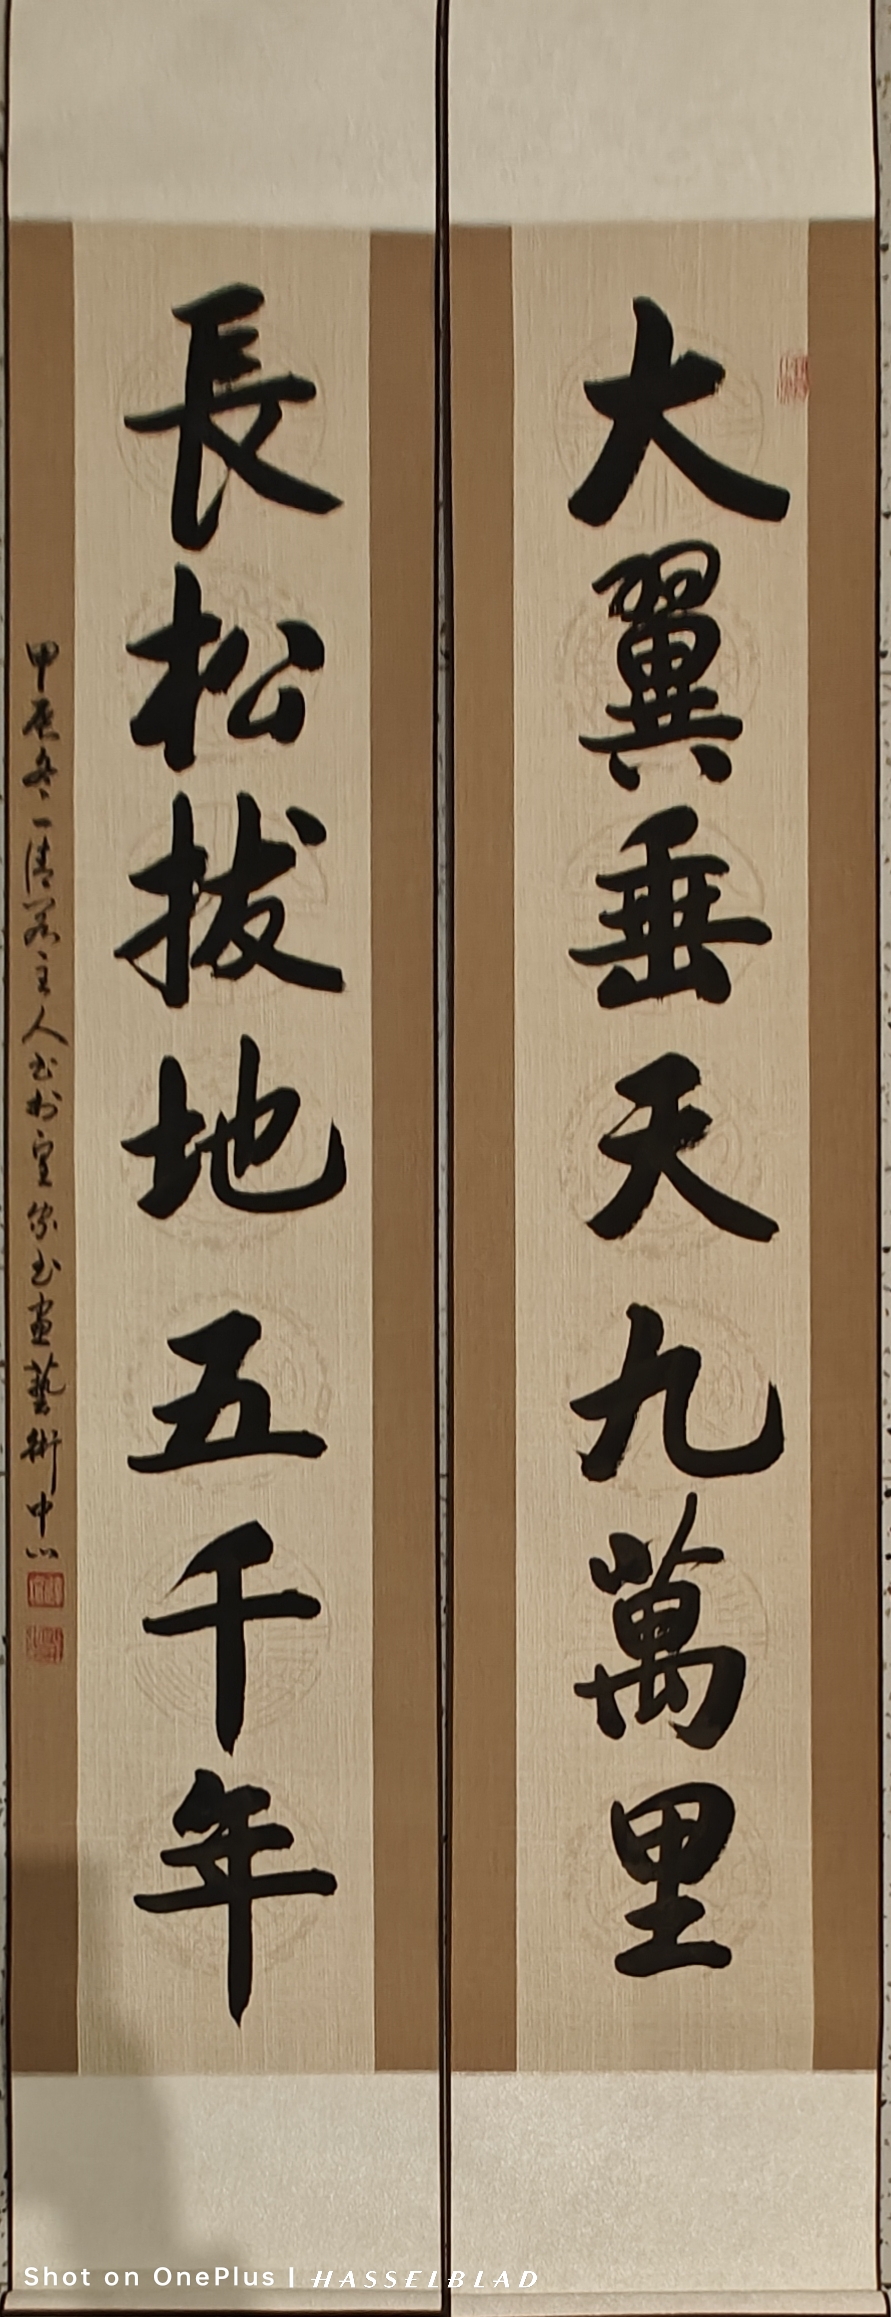 大翼垂天九萬里
長松拔地五千年
甲辰冬一清茗主人书於皇家书画藝術中心
Shot on OnePlus | HASSELBLAD